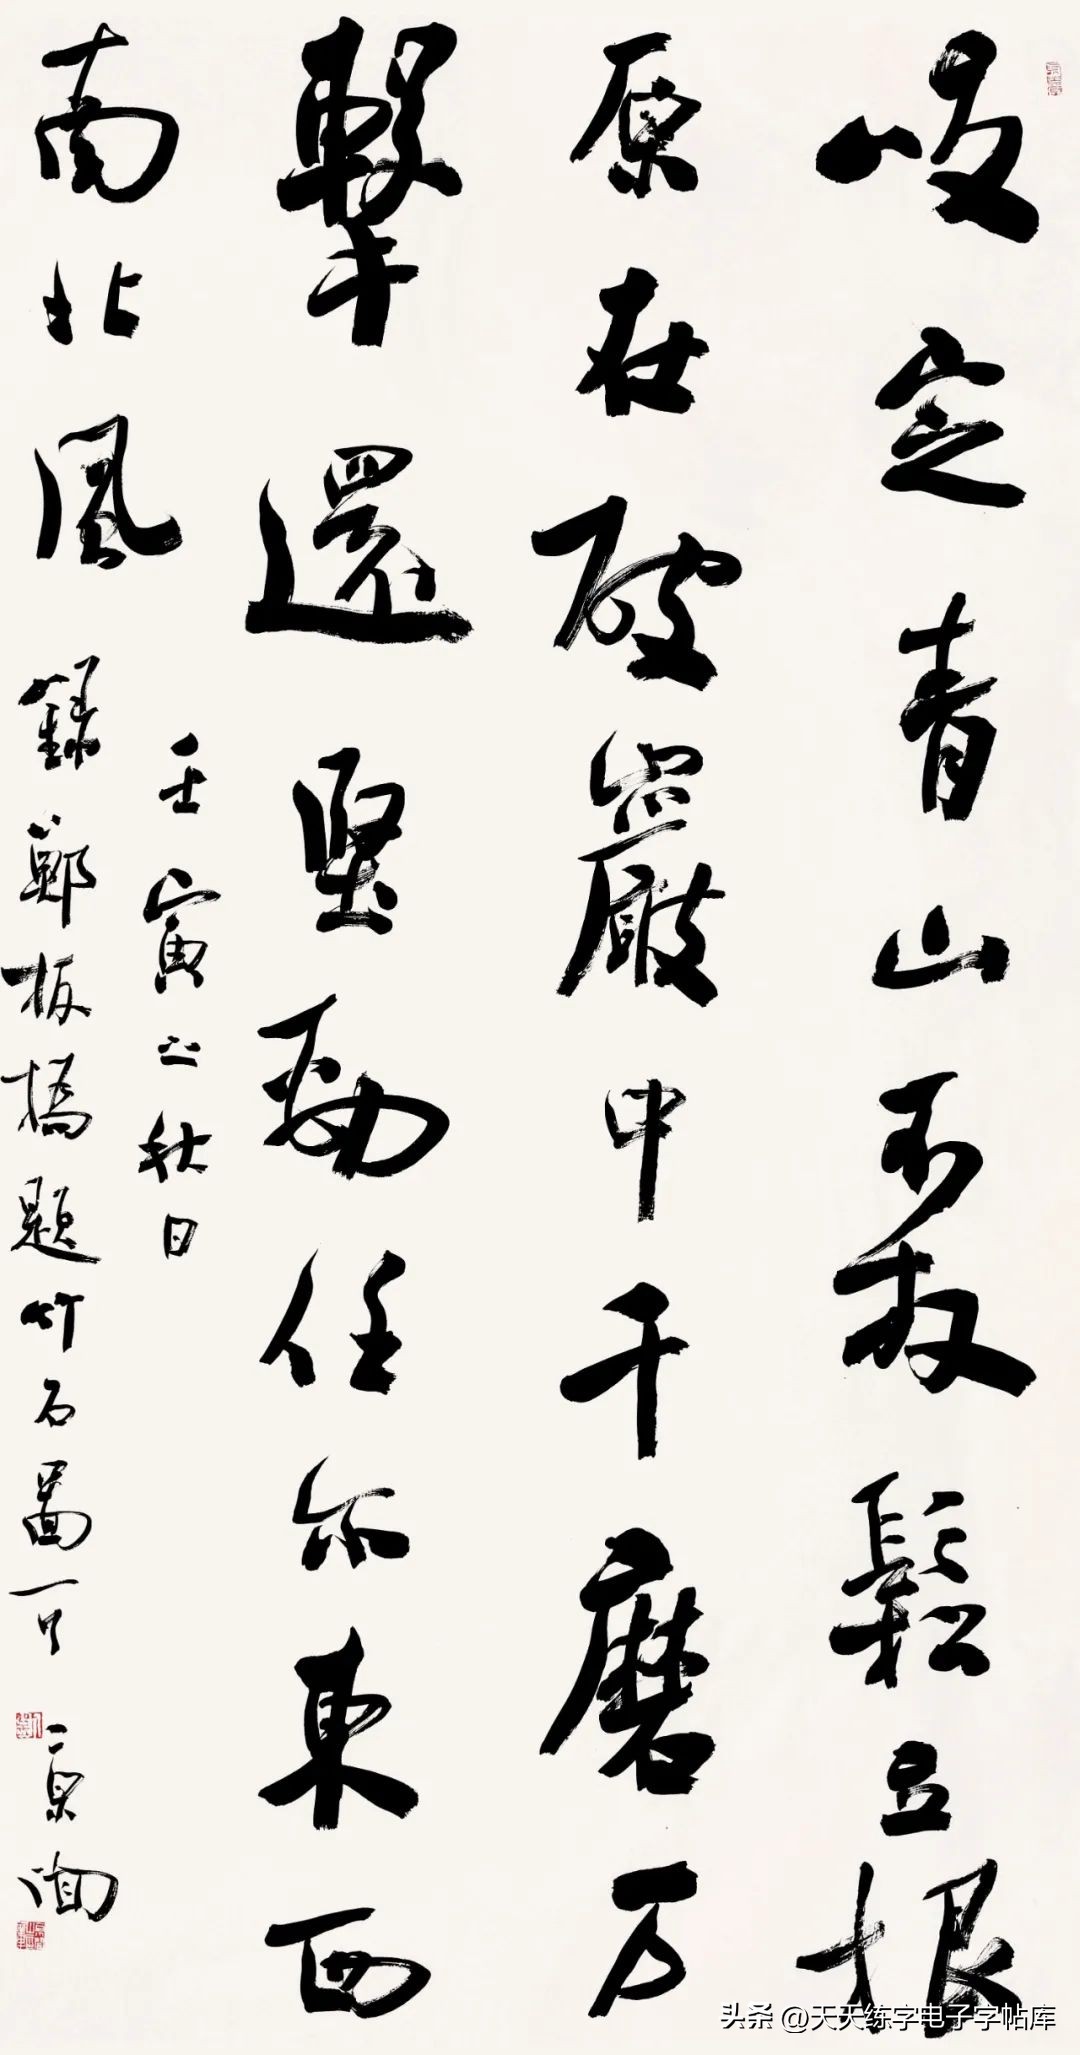 咬定青山不放鬆立根
原在破巖中千磨万
擊還堅勁任尔東西
南北風
壬寅之秋日
錄鄭板橋題竹石圖一
头条 @天天练字电子字帖库